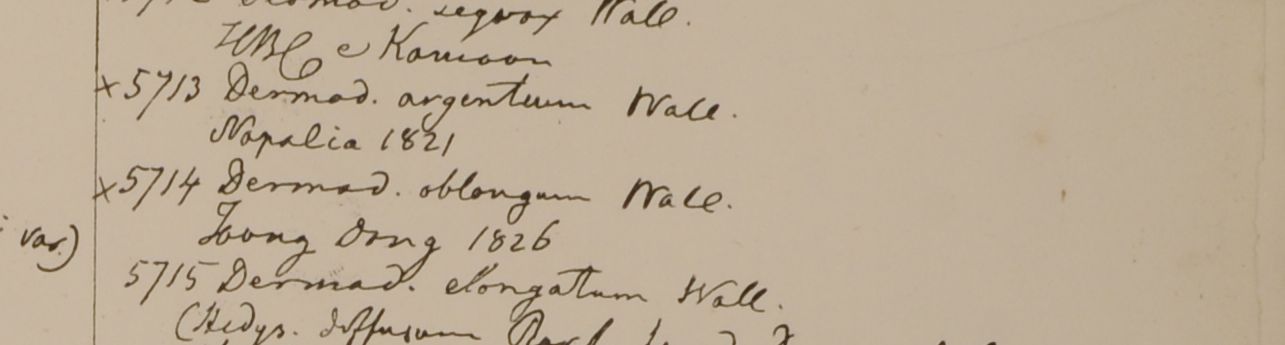 Wall.
HBC e Kamoon
x 5713 Dermad. argenteum Wall.
Napalia 1821
x 5714 Dermad. oblongum Wall.
Toong Dong 1826
var.)
5715 Dermad. elongatum Wall.
(Hedys. diffusum